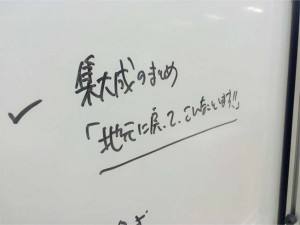 集大成のまとめ
「地元に戻って、こんなことします!!」